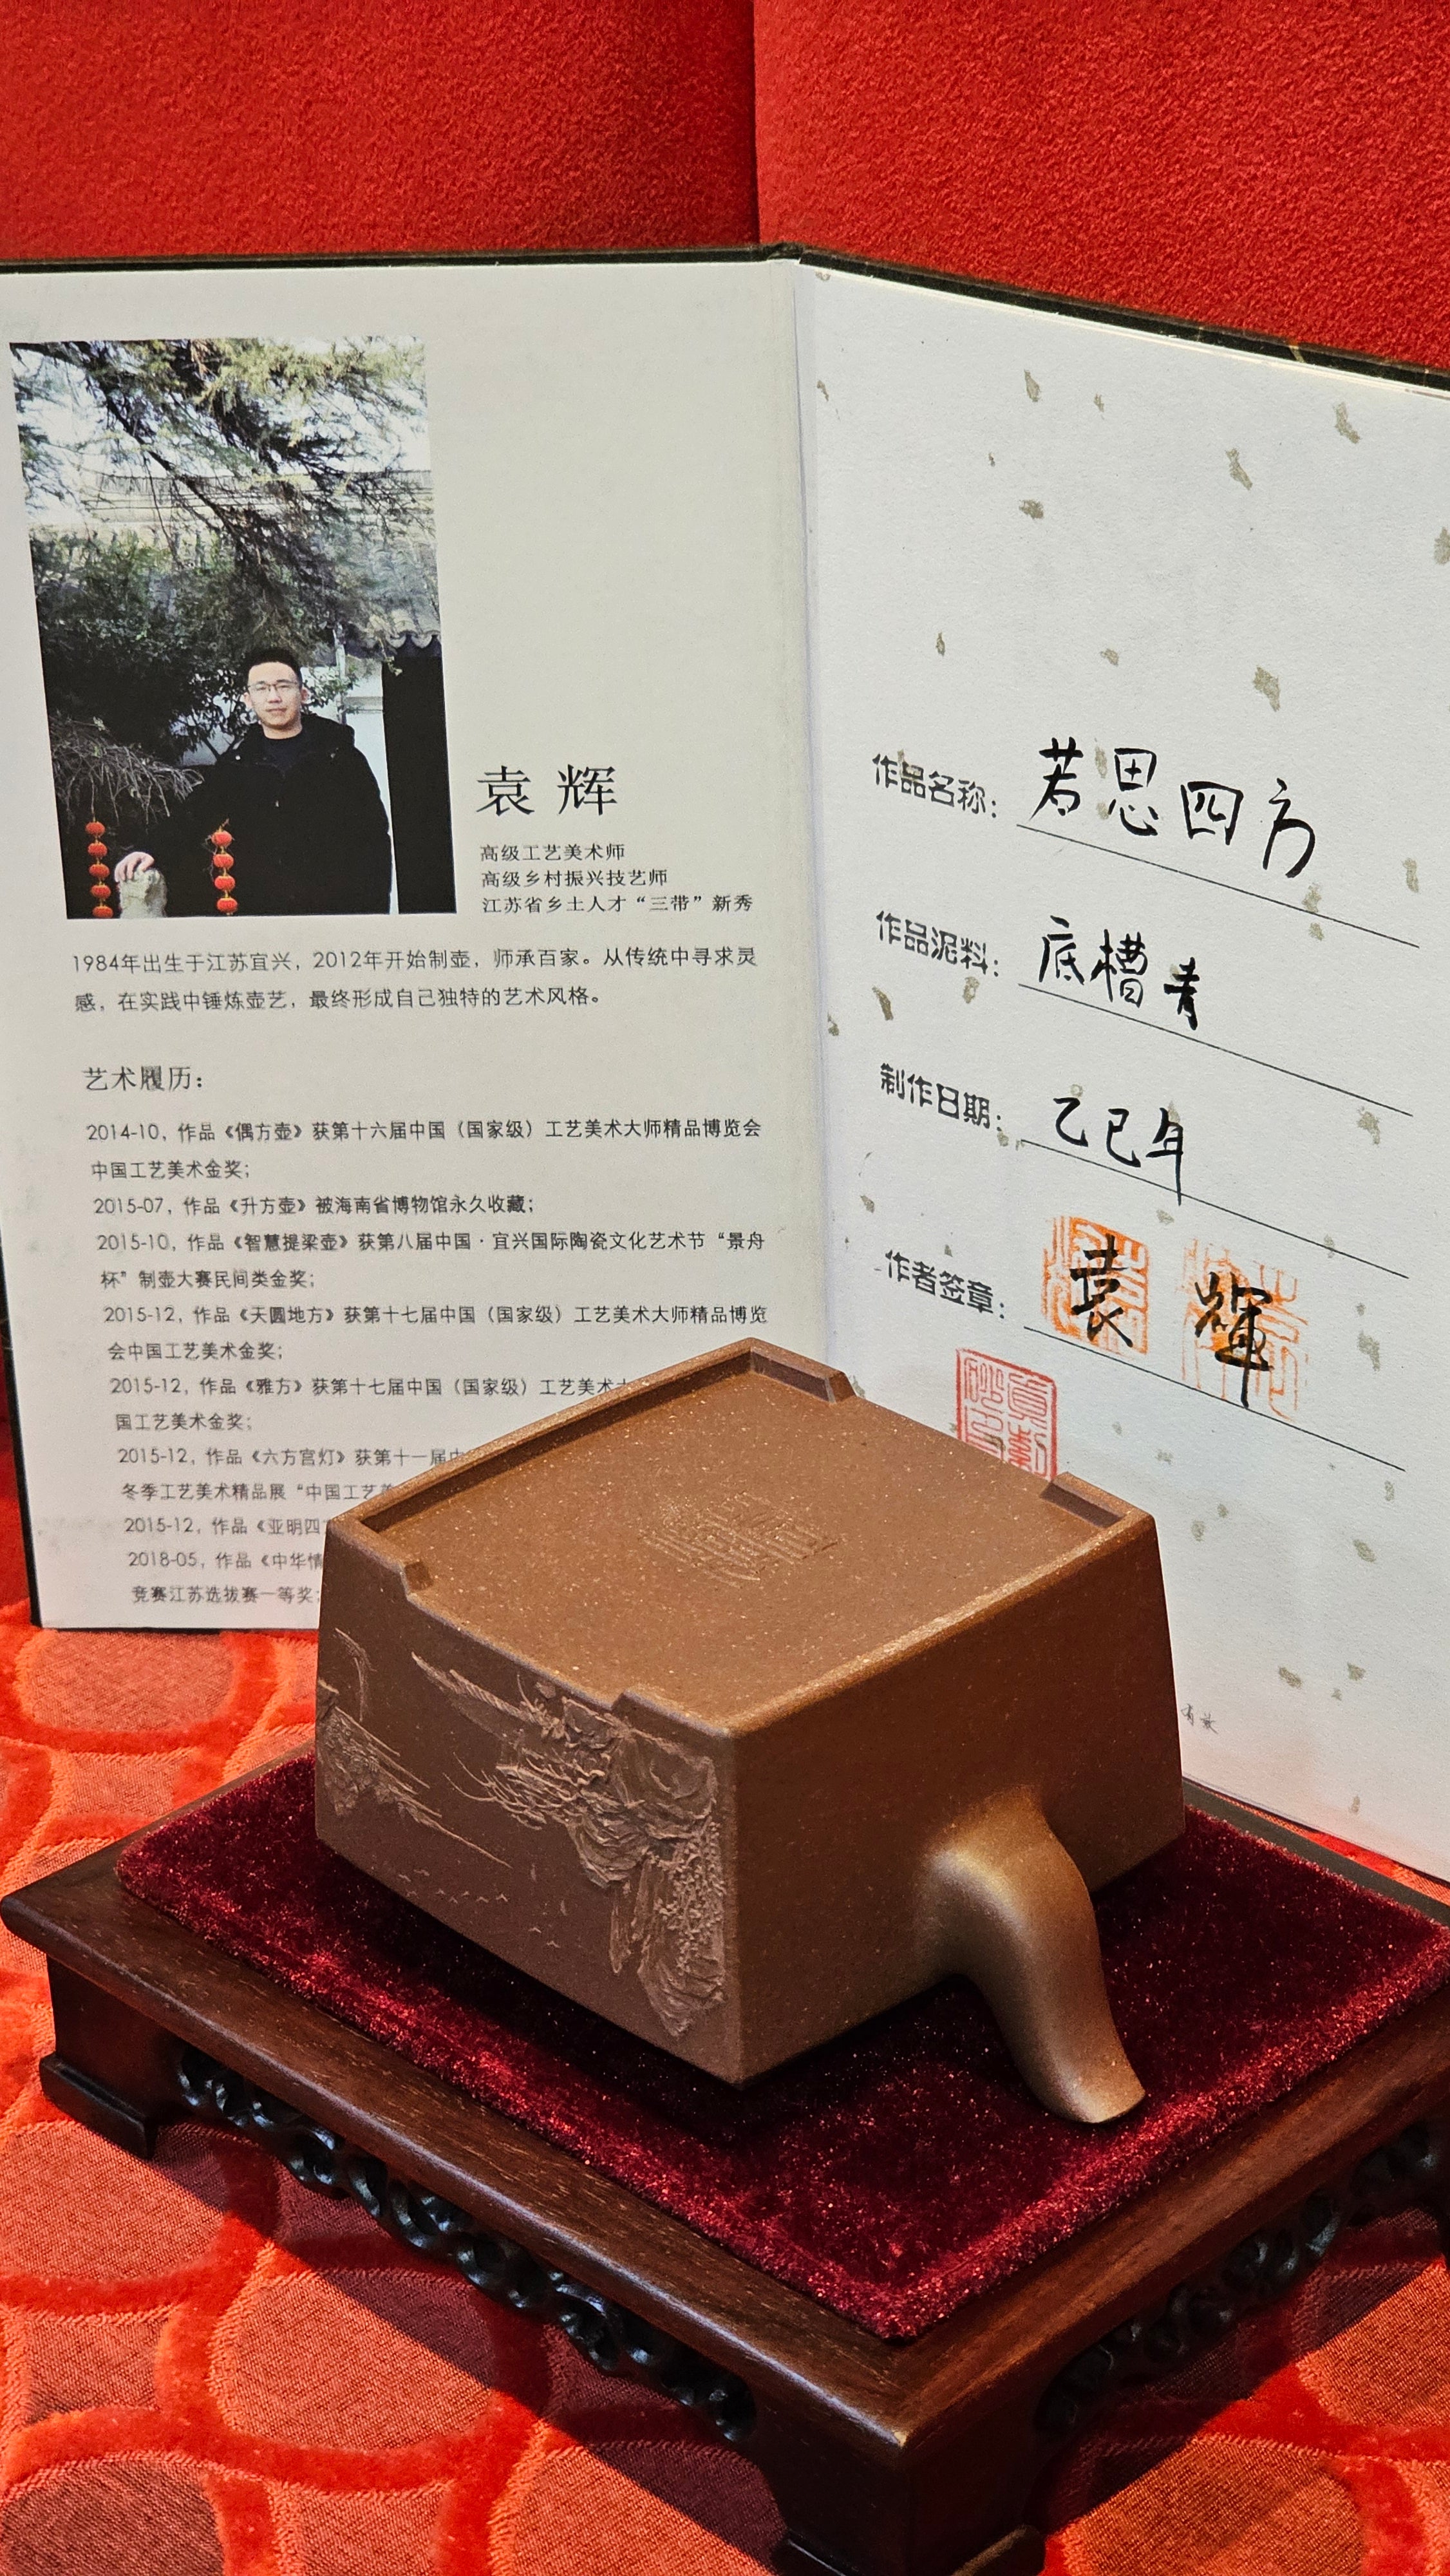 袁辉
高级工艺美术师
高级乡村振兴技艺师
江苏省乡土人才“三带”新秀
1984年出生于江苏宜兴，2012年开始制壶，师承百家。从传统中寻求灵
感，在实践中锤炼壶艺，最终形成自己独特的艺术风格。
艺术履历：
2014-10，作品《偶方壶》获第十六届中国（国家级）工艺美术大师精品博览会
中国工艺美术金奖；
2015-07，作品《升方壶》被海南省博物馆永久收藏；
2015-10，作品《智慧提梁壶》获第八届中国·宜兴国际陶瓷文化艺术节“景舟
杯”制壶大赛民间类金奖；
2015-12，作品《天圆地方》获第十七届中国（国家级）工艺美术大师精品博览
会中国工艺美术金奖；
2015-12，作品《雅方》获第十七届中国（国家级）工艺美术
国工艺美术金奖；
2015-12，作品《六方宫灯》获第十一届中
冬季工艺美术精品展“中国工艺美
2015-12，作品《亚明四方
2018-05，作品《中华情
竞赛江苏选拔赛一等奖；
作品名称：若思四方
作品泥料：底槽青
制作日期：乙巳年
作者签章：袁輝
有效